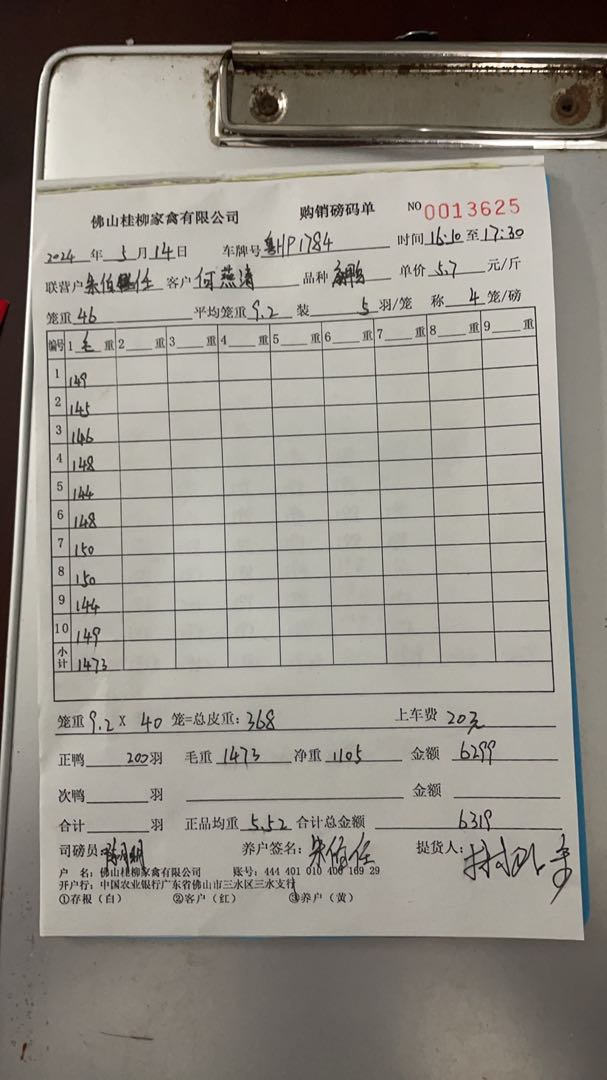 佛山桂柳家禽有限公司 购销磅码单 NO 0013625
2024 年 5 月 14 日 车牌号 粤HP1784 时间 16:10 至 17:30
联营户 朱伯任 客户 何燕清 品种 单价 5.7 元/斤
笼重 46 平均笼重 9.2 装 5 羽/笼 称 4 笼/磅
编号 1 毛 重 2 重 3 重 4 重 5 重 6 重 7 重 8 重 9 重
1 149
2 145
3 146
4 148
5 144
6 148
7 150
8 150
9 144
10 149
小计 1473
笼重 9.2 × 40 笼=总皮重: 368 上车费 20元
正鸭 200 羽 毛重 1473 净重 1105 金额 6299
次鸭 羽 金额
合计 羽 正品均重 5.52 合计总金额 6319
司磅员: 养户签名: 朱伯任 提货人:
户 名: 佛山桂柳家禽有限公司 账号: 444 401 010 400 169 29
开户行: 中国农业银行广东省佛山市三水区三水支行
①存根（白） ②客户（红） ③养户（黄）